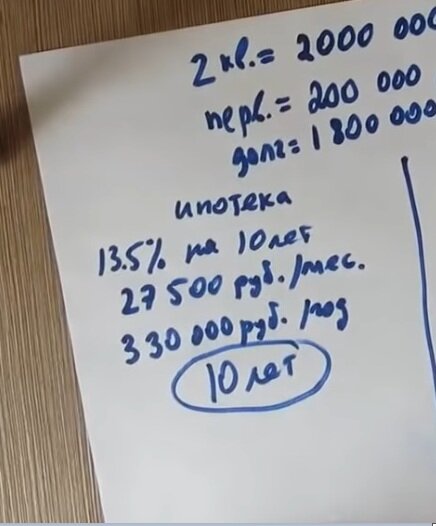 2 кв. = 2000 000
перв. = 200 000
долг = 1 800 000
ипотека
13.5% на 10 лет
27 500 руб./мес.
330 000 руб. /год
10 лет